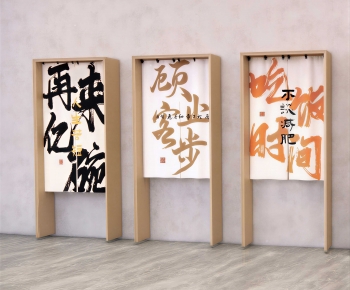 再来亿碗
顾客止步
吃饭时间
不谈减肥